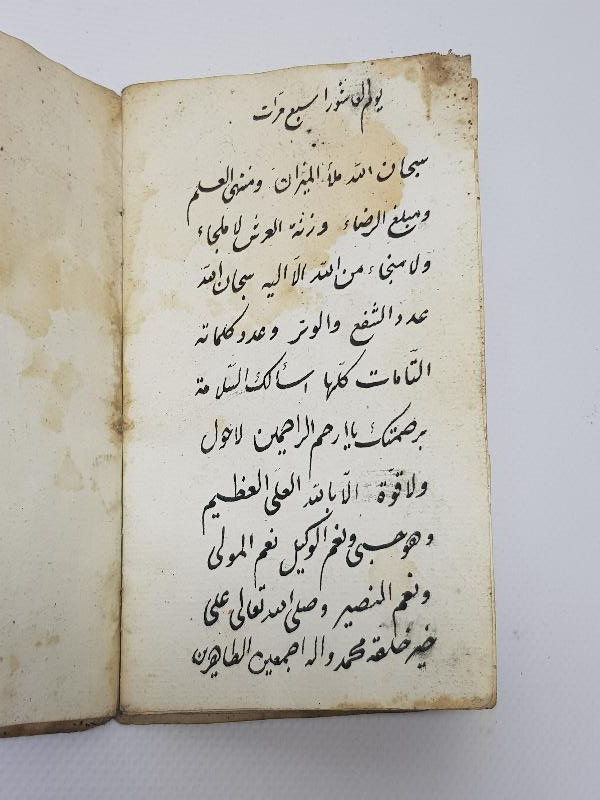 يوم العاشورا سبع مرات
سبحان الله ملأ الميزان ومنتهى العلم
ومبلغ الرضاء وزنة العرش لا ملجاء
ولا منجاء من الله الا اليه سبحان الله
عدد الشفع والوتر وعدد كلماته
التامات كلها اسألك السلامة
برحمتك يا ارحم الراحمين لا حول
ولا قوة الا بالله العلى العظيم
وهو حسبى ونعم الوكيل نعم المولى
ونعم النصير وصلى الله تعالى على
خير خلقه محمد واله اجمعين الطاهرين